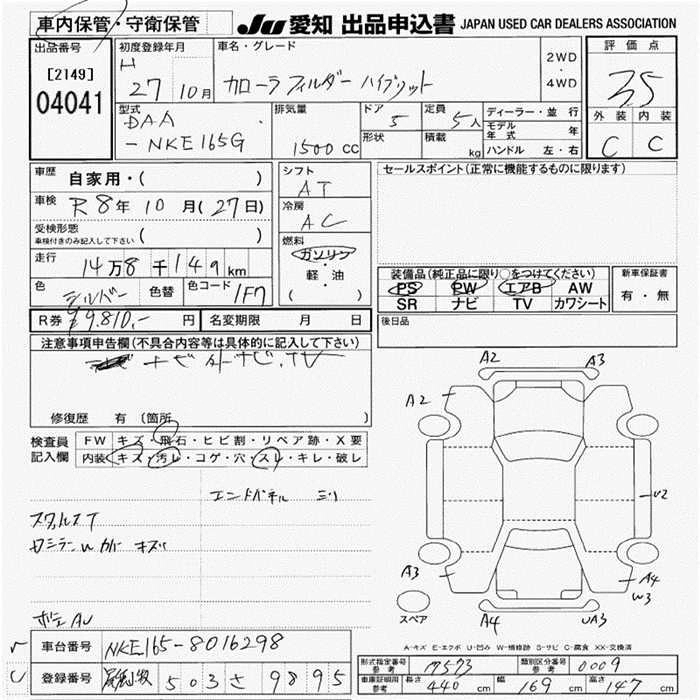 車内保管・守衛保管
JU 愛知 出品申込書 JAPAN USED CAR DEALERS ASSOCIATION
出品番号
[2149]
04041
初度登録年月
H 27 10月
車名・グレード
カローラフィルダー ハイブリット
2WD
・
4WD
評価点
3.5
外装 内装
C C
型式
DAA
-NKE165G
排気量
1500 cc
ドア
5
定員
5人
形状
積載
kg
ディーラー・並行
モデル年式 年
ハンドル 左・右
車歴
自家用・( )
車検
R8年10月(27日)
受検形態
車検付きのみ記入して下さい
( )
走行
14万8千149km
色
シルバー
色替
色コード
1F7
シフト
AT
冷房
AC
燃料
ガソリン
・
軽・油
( )
セールスポイント(正常に機能するものに限ります)
装備品(純正品に限り○をつけてください)
PS PW エアB AW
SR ナビ TV カワシート
新車保証書
有・無
後日品
R券 ¥9.810,- 円
名変期限 月 日
注意事項申告欄(不具合内容等は具体的に記入して下さい)
ナビ 外ナビ.TV
修復歴 有 (箇所
検査員
記入欄
FW キズ・飛石・ヒビ割・リペア跡・X要
内装 キズ・汚レ・コゲ・穴・スレ・キレ・破レ
エンドパネル
スタッドレスT
キズ
A2 A3
A2
U2
A3 A4
W3
A4 UA3
スペア
A-キズ E-エクボ U-凹み W-補修跡 S-サビ C-腐食 XX-交換済
車台番号 NKE165-8016298
登録番号 503 さ 9895
形式指定番号
参考
17573
類別区分番号
参考
0009
車庫証明用
参考
長さ 440 cm 幅 169 cm 高さ 147 cm